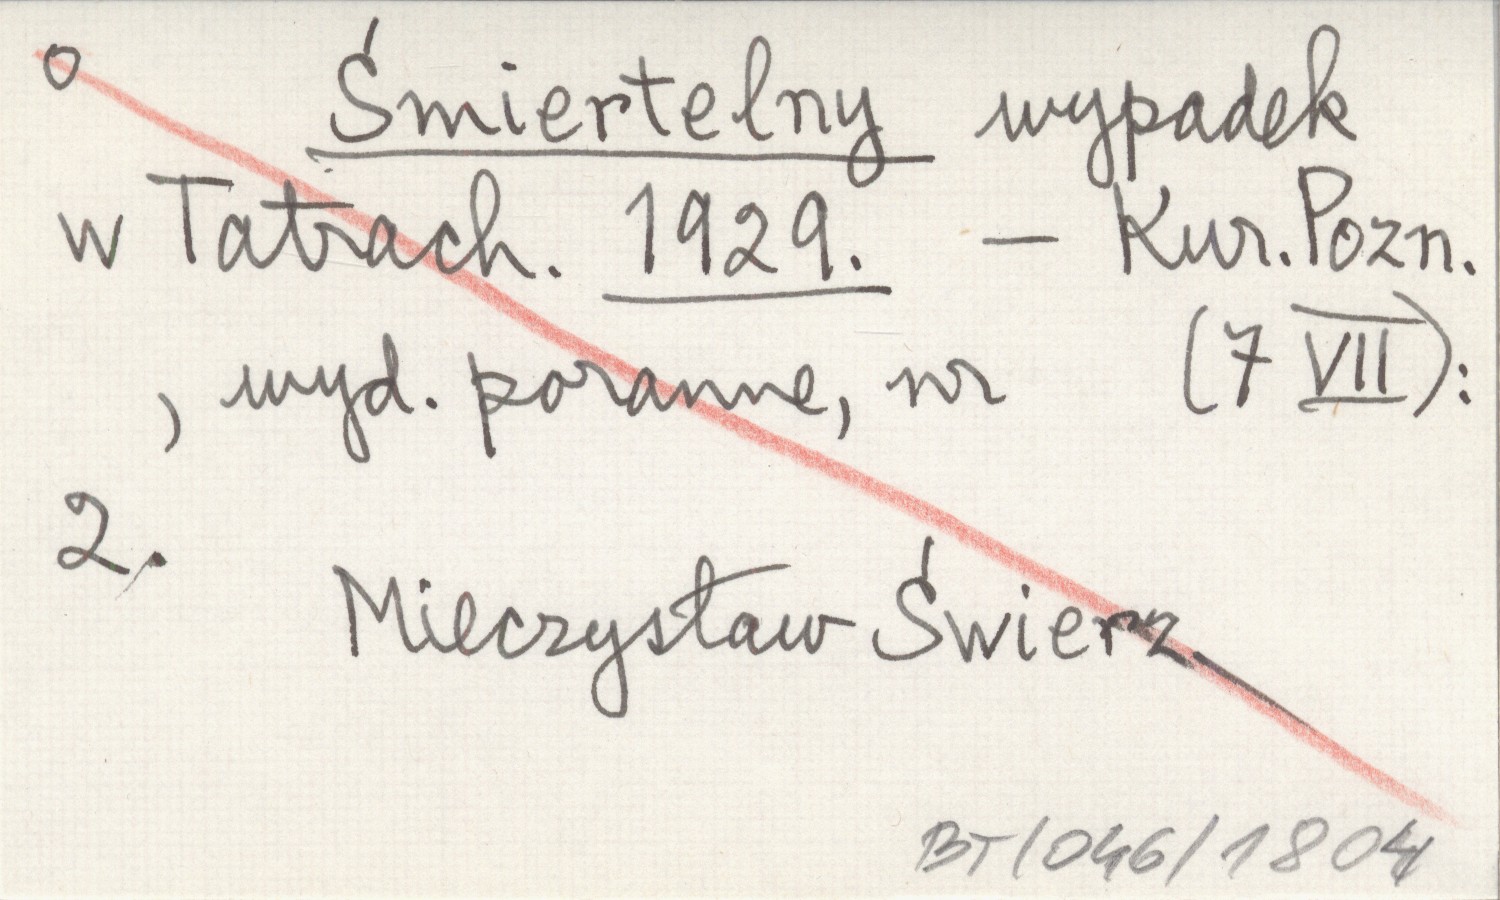 o Śmiertelny wypadek
w Tatrach. 1929. — Kur. Pozn.
, wyd. poranne, nr (7 VII):
2.
Mieczysław Świerz
BT/046/1804